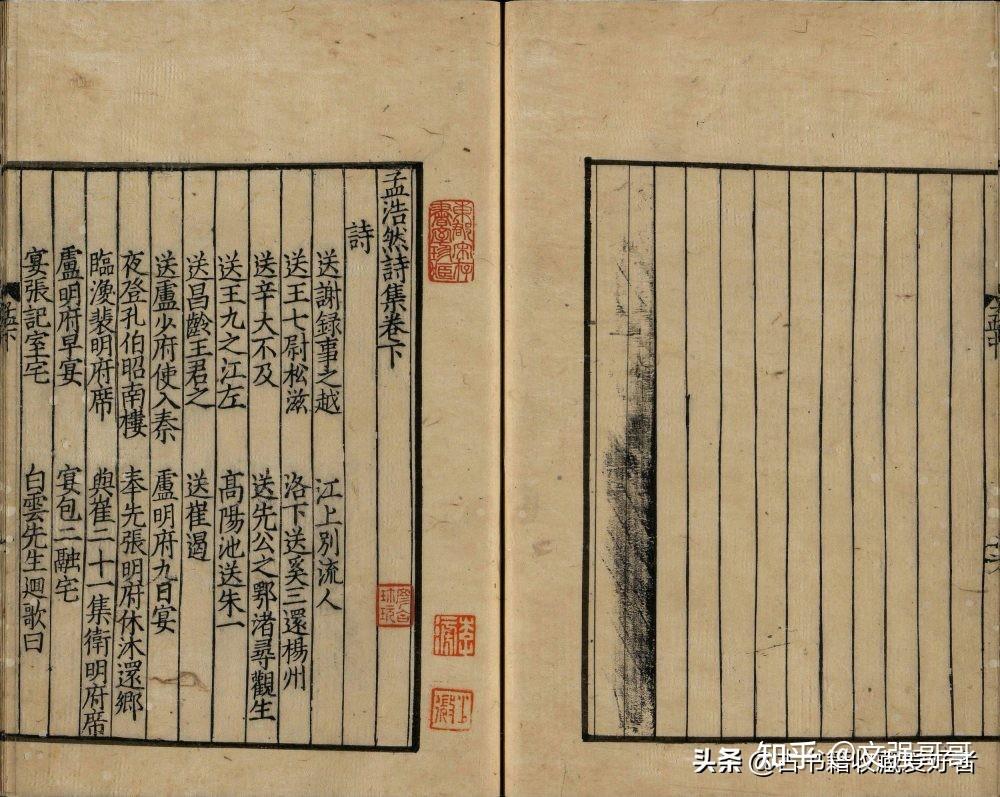 孟浩然詩集卷下
詩
送謝録事之越 江上別流人
送王七尉松滋 洛下送奚三還楊州
送辛大不及 送先公之鄂渚尋觀生
送王九之江左 高陽池送朱一
送昌齡王君之 送崔遏
送盧少府使入秦 盧明府九日宴
夜登孔伯昭南樓 奉先張明府休沐還鄉
臨渙裴明府席 與崔二十一集衛明府席
盧明府早宴 宴包二融宅
宴張記室宅 白雲先生迴歌曰
孟下
头条 @古书籍收藏爱好者
知乎 @文强哥哥